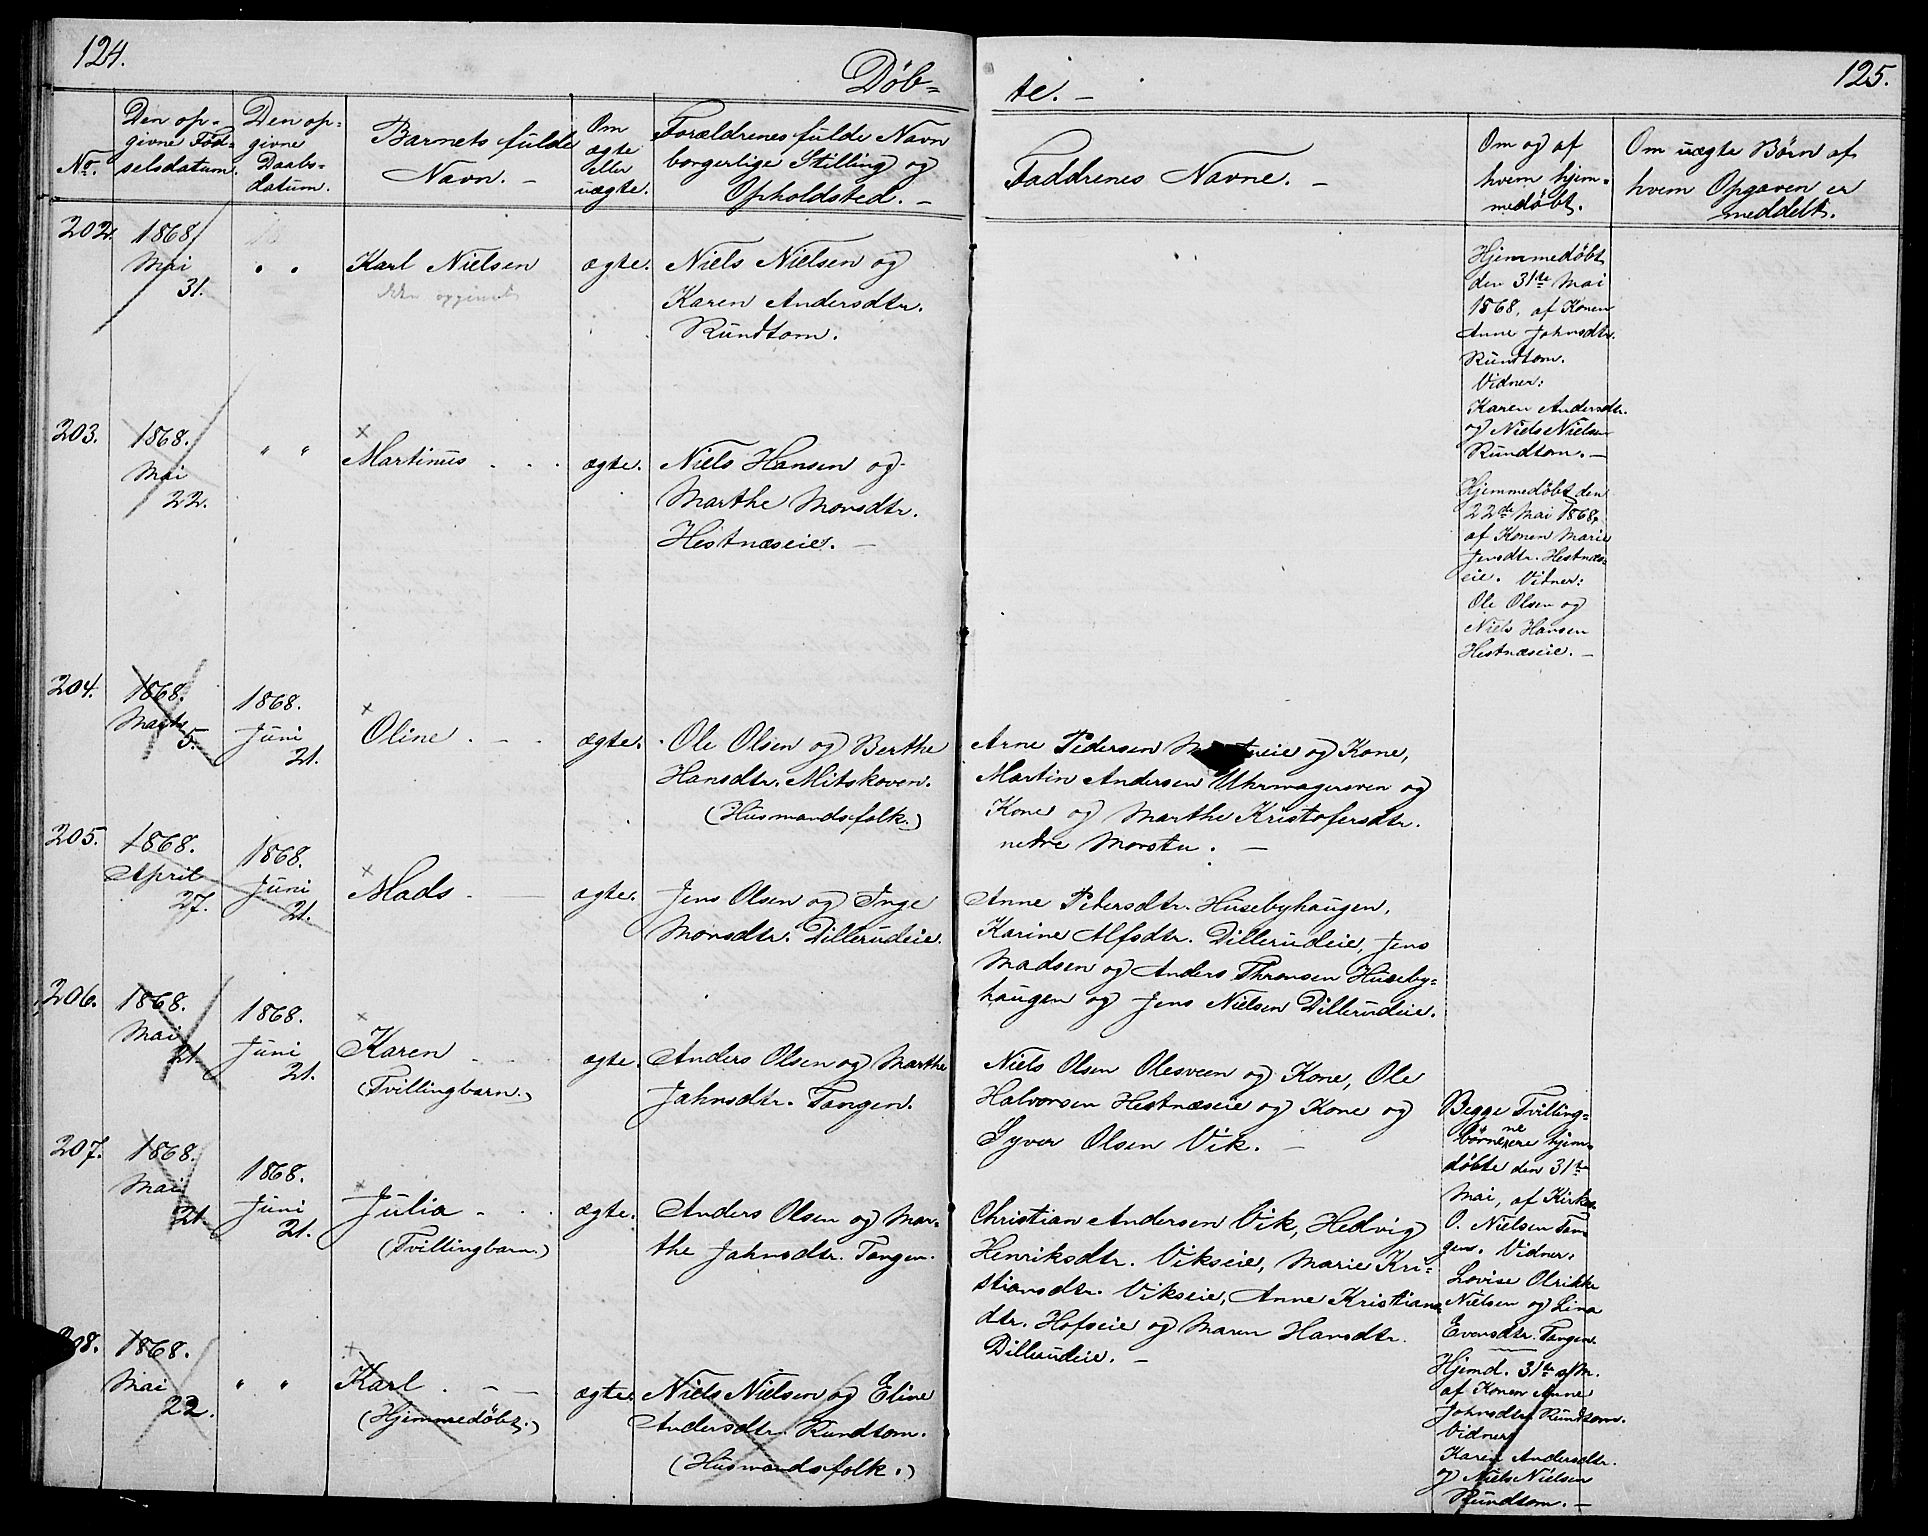 124.
Døb-
No.
Den op-
givne Fød-
selsdatum.
Den op-
givne
Daabs-
datum.
Barnets fulde
Navn. -
Om
ægte
eller
uægte.
Forældrenes fulde Navn
borgerlige Stilling og
Opholdsted. -
202.
1868.
Mai
31.
" "
Karl Nielsen
ægte.
Niels Nielsen og
Karen Andersdtr.
Rundtom.
203.
1868.
Mai
22.
" "
x
Martinus
ægte.
Niels Hansen og
Marthe Monsdtr.
Hestnæseie. -
204.
1868.
Marts
5.
1868.
Juni
21.
x
Oline
ægte.
Ole Olsen og Berthe
Hansdtr. Mitskoven.
(Husmandsfolk.)
205.
1868.
April
27.
1868.
Juni
21.
x
Mads
ægte.
Jens Olsen og Inge
Monsdtr. Dillerudeie.
206.
1868.
Mai
21.
1868.
Juni
21.
x
Karen
(Tvillingbarn.)
ægte.
Anders Olsen og Marthe
Jahnsdtr. Tangen.
207.
1868.
Mai
21.
1868.
Juni
21.
x
Julia
(Tvillingbarn.)
ægte.
Anders Olsen og Mar-
the Jahnsdtr. Tangen.
208.
1868.
Mai
22.
" "
x
Karl
(Hjemmedøbt.)
ægte.
Niels Nielsen og Eline
Andersdtr. Rundtom.
(Husmandsfolk.)
125.
te. -
Faddrenes Navne. -
Om og af
hvem hjem-
medøbt.
Om uægte Børn af
hvem Opgaven er
meddelt.
Hjemmedøbt
den 31te Mai
1868, af Konen
Anne Jahnsdtr.
Rundtom.
Vidner:
Karen Andersdtr.
og Niels Nielsen
Rundtom. -
Hjemmedøbt den
22de Mai 1868,
af Konen Marie
Jensdtr. Hestnæs-
eie. Vidner:
Ole Olsen og
Niels Hansen
Hestnæseie. -
Arne Pedersen og Kone,
Martin Andersen Uhrmagersven og
Kone og Marthe Kristofersdtr.
nedre Morstu. -
Anne Petersdtr. Husebyhaugen,
Karine Alfsdtr. Dillerudeie, Jens
Madsen og Anders Thronsen Huseby-
haugen og Jens Nielsen Dillerudeie.
Niels Olsen Olesveen og Kone, Ole
Halvorsen Hestnæseie og Kone og
Syver Olsen Vik. -
Christian Andersen Vik, Hedvig
Henriksdtr. Vikseie, Marie Kri-
stiansdtr. Vikseie, Anne Kristians
dtr. Hofseie og Maren Hansdtr.
Dillerudeie. -
Begge Tvilling-
børnene ere hjem-
døbte den 31te
Mai, af Kirkes.
O. Nielsen Tan
gen. Vidner:
Lovise Olrikke
Nielsen og Lina
Evensdtr. Tangen.
Hjemd. 31te s/M.
af Konen Anne
Jahnsdtr. Rundtom.
Vidner:
Karen Andersdtr.
og Niels Nielsen
Rundtom. -